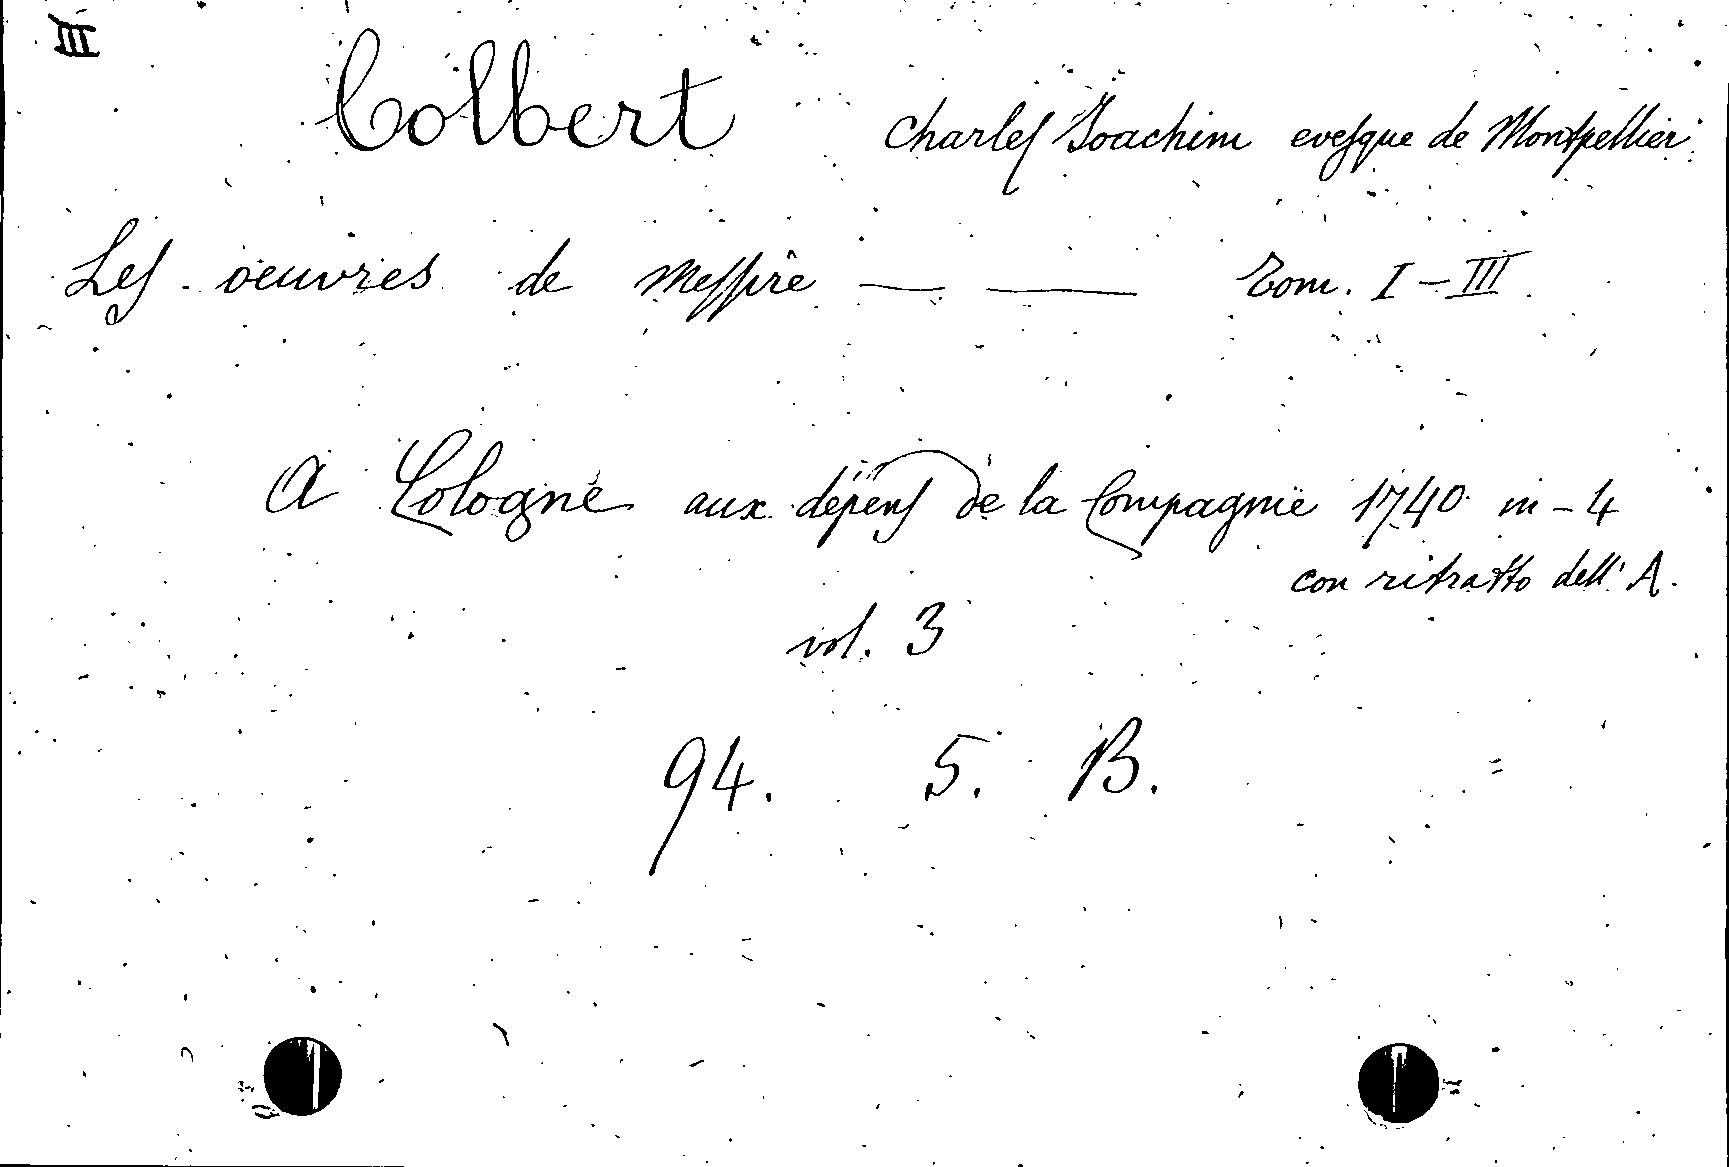 III
Colbert Charles Joachim evesque de Montpellier
Les oeuvres de Messire — — Tom. I - III
A Cologne aux dépens de la Compagnie 1740 in-4
con ritratto dell' A.
vol. 3
94. 5. B.